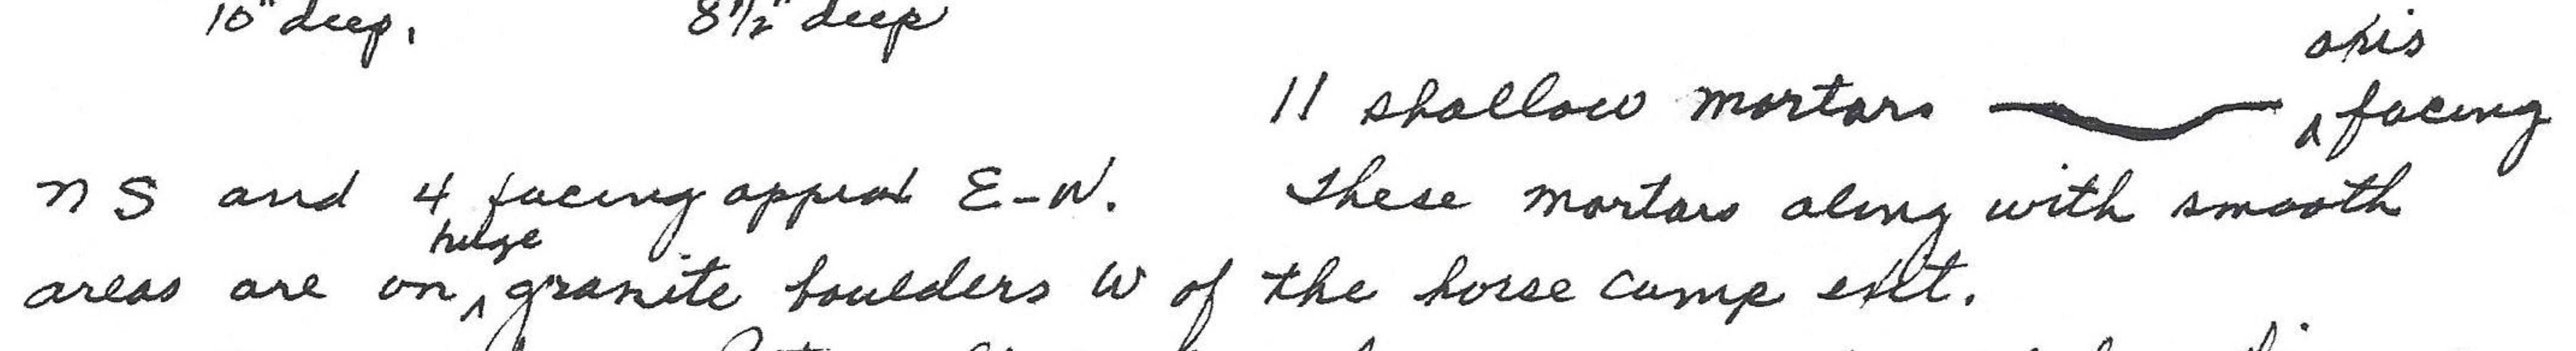 10" deep. 8 1/2" deep
11 shallow mortars axis facing
N S and 4 facing approx E-W. These mortars along with smooth
areas are on huge granite boulders W of the horse camp exit.